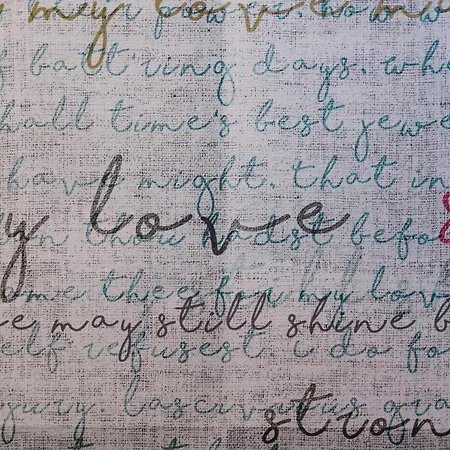 my love m
of batt'ring days. whe
hall time's best jewe
have might. that in
y love
thou hadst befo
ome thee for my lov
e may still shine b
elf refusest i do fo
jury. lascivious gra
stron